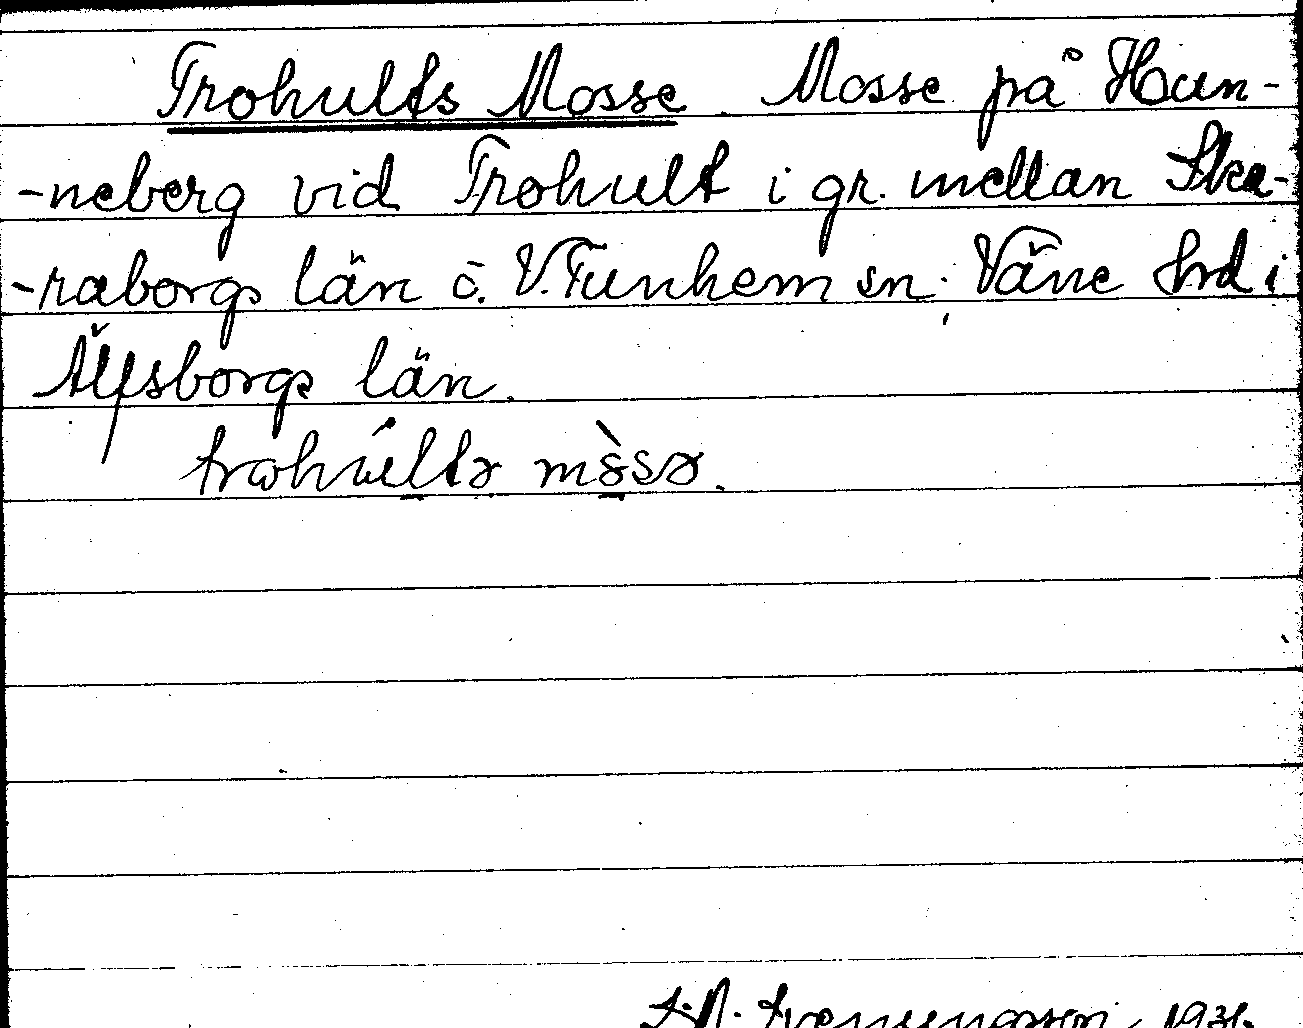 Trohults Mosse. Mosse på Hun-
-neberg vid Trohult i gr. mellan Ska-
-raborgs län o. V. Tunhem sn. Väne hrd i
Älfsborgs län.